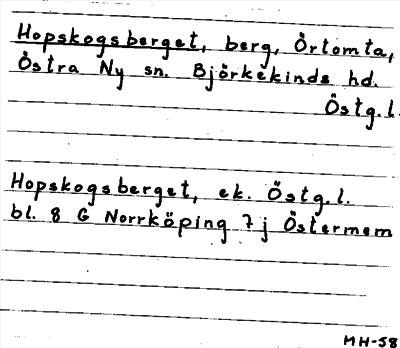 Hopskogsberget, berg, Örtomta,
Östra Ny sn. Björkekinds hd.
Östg.l.
Hopskogsberget, ek. Östg.l.
bl. 8 G Norrköping 7 j Östermem
MH-58